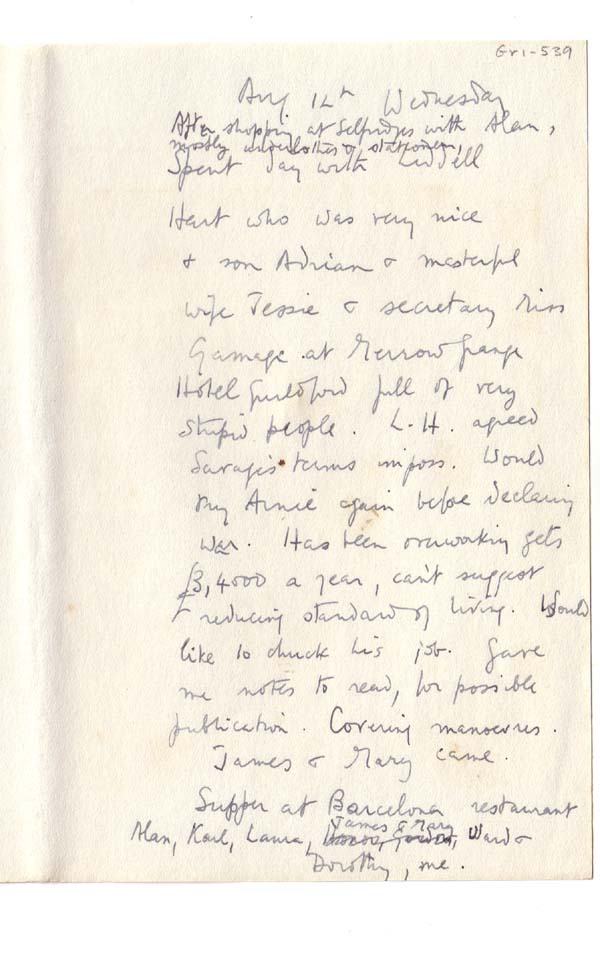 Gr1-539
Aug 12th Wednesday
After shopping at Selfridges with Alan,
mostly underclothes & stationery,
Spent day with Liddell
Hart who was very nice
& son Adrian & masterful
wife Jessie & secretary Miss
Gamage at Merrow Grange
Hotel Guildford full of very
stupid people. L.H. agreed
Savage's terms imposs. Would
try Arnie again before declaring
war. Has been overworking gets
£3,4000 a year, can't suggest
reducing standard of living. Would
like to chuck his job. Gave
me notes to read, for possible
publication. Covering manoevres.
James & Mary came.
Supper at Barcelona restaurant
James & Mary
Alan, Karl, Laura, Ward &
Dorothy, me.